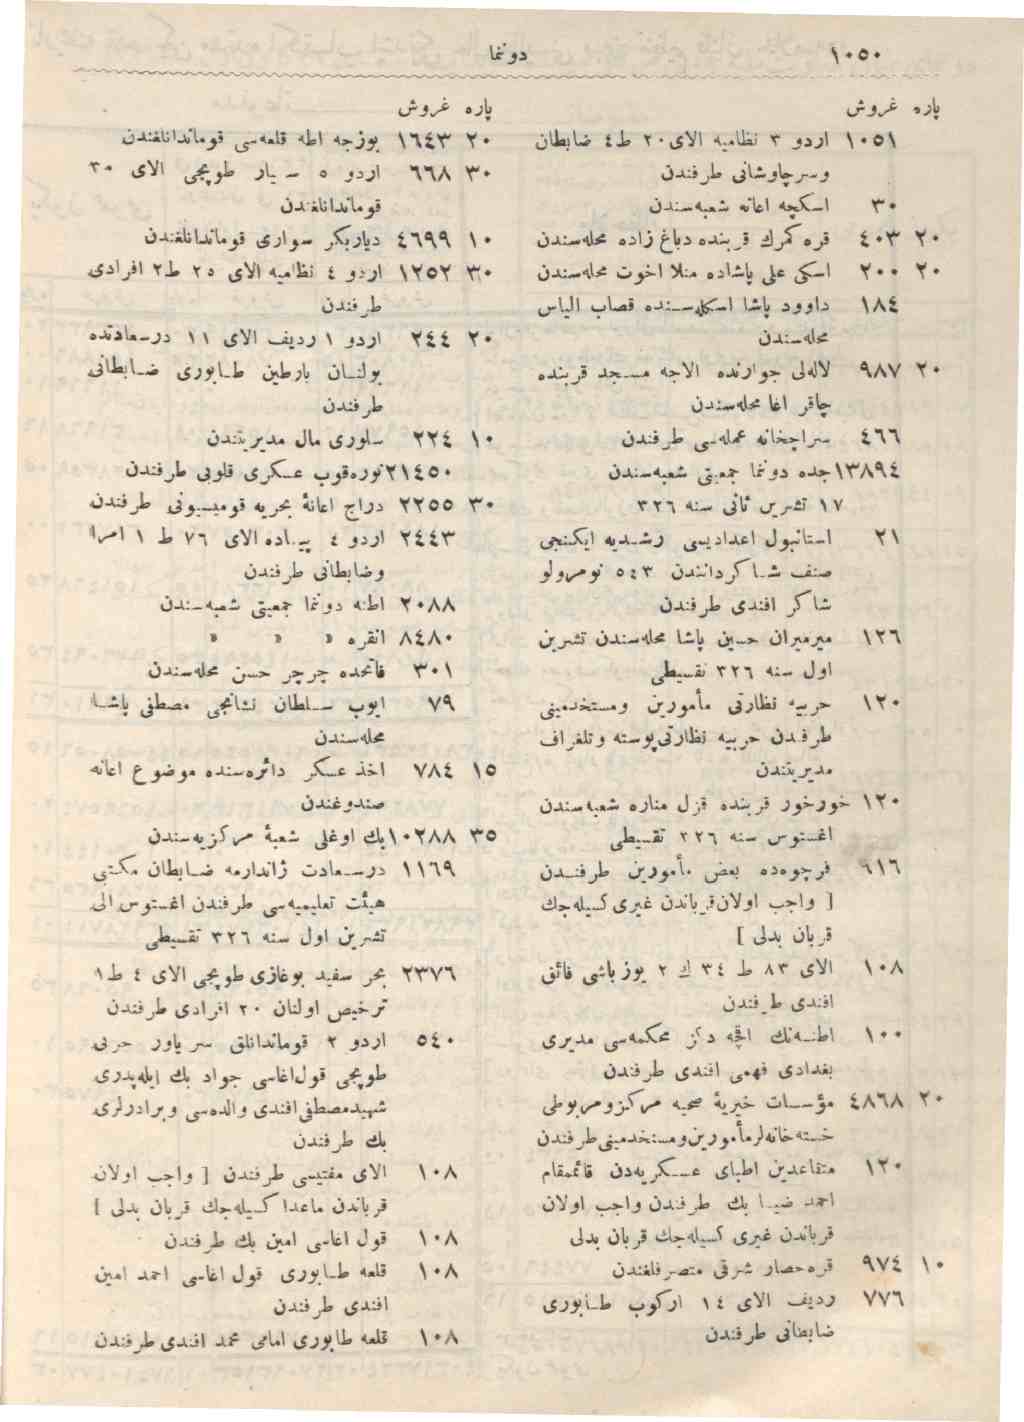 ١٠٥٠
دوننما
پاره غروش
١٠٥١ اردو ٣ نظاميه الاى ٢٠ ط٤ ضابطان
وسرچاوشانى طرفندن
٣٠ اسكچه اعانه شعبه‌سندن
٢٠ ٤٠٣ قره كمرك قربنده دباغ زاده محله‌سندن
٢٠ ٢٠٠ اسكى على پاشاده منلا اخوت محله‌سندن
١٨٤ داوود پاشا اسكله‌سنده قصاب الياس
محله‌سندن
٢٠ ٩٨٧ لاله‌لى جوارنده الاجه مسجد قربنده
چاقر اغا محله‌سندن
٤٦٦ سراجخانه عمله‌سى طرفندن
١٣٨٩٤ جده دوننما جمعيتى شعبه‌سندن
١٧ تشرين ثانى سنه ٣٢٦
٢١ استانبول اعداديسى رشديه ايكنجى
صنف شاكردانندن ٥٤٣ نومرولو
شاكر افندى طرفندن
١٢٦ ميرميران حسين پاشا محله‌سندن تشرين
اول سنه ٣٢٦ تقسيطى
١٢٠ حربيه نظارتى مأمورين ومستخدمينى
طرفندن حربيه نظارتى پوسته وتلغراف
مديريتندن
١٢٠ خورخور قربنده قزل مناره شعبه‌سندن
اغستوس سنه ٣٢٦ تقسيطى
٦١٦ فرجوه‌ده بعض مأمورين طرفندن
[ واجب اولان قرباندن غيرى كسيله‌جك
قربان بدلى ]
١٠٨ الاى ٨٣ ط ٣٤ ك ٢ يوزباشى فائق
افندى طرفندن
١٠٠ اطنه‌نك اقچه دكز محكمه‌سى مديرى
بغدادى فهمى افندى طرفندن
٢٠ ٤٨٦٨ مؤسسات خيريهٔ صحيه مركز ومربوطى
خسته‌خانه‌لر مأمورين ومستخدمينى طرفندن
١٢٠ متقاعدين اطباى عسكريه‌دن قائممقام
احمد ضيا بك طرفندن واجب اولان
قرباندن غيرى كسيله‌جك قربان بدلى
١٠ ٩٧٤ قره‌حصار شرقى متصرفلغندن
٧٧٦ رديف الاى ١٤ اركوب طابورى
ضابطانى طرفندن
پاره غروش
٢٠ ١٦٤٣ بوزجه اطه قلعه‌سى قوماندانلغندن
٣٠ ٦٦٨ اردو ٥ سيار طوپجى الاى ٣٠
قوماندانلغندن
١٠ ٤٦٩٩ دياربكر سوارى قوماندانلغندن
٣٠ ١٢٥٢ اردو ٤ نظاميه الاى ٢٥ ط٢ افرادى
طرفندن
٢٠ ٢٤٤ اردو ١ رديف الاى ١١ درسعادتده
بولنان بارطين طابورى ضابطانى
طرفندن
١٠ ٢٢٤ سلورى مال مديريتندن
٢١٤٥٠ نوره‌قوب عسكرى قلوبى طرفندن
٣٠ ٢٢٥٥ دراج اعانهٔ بحريه قوميسيونى طرفندن
٢٤٤٣ اردو ٤ پياده الاى ٧٦ ط ١ امرا
وضابطانى طرفندن
٢٠٨٨ اطنه دوننما جمعيتى شعبه‌سندن
٨٤٨٠ انقره » » »
٣٠١ فاتحده چرچر حسن محله‌سندن
٧٩ ايوب سلطان نشانجى مصطفى پاشا
محله‌سندن
١٥ ٧٨٤ اخذ عسكر دائره‌سنده موضوع اعانه
صندوغندن
٣٥ ١٠٢٨٨ بك اوغلى شعبهٔ مركزيه‌سندن
١١٦٩ درسعادت ژاندارمه ضابطان مكتبى
هيئت تعليميه‌سى طرفندن اغستوس الى
تشرين اول سنه ٣٢٦ تقسيطى
٢٣٧٦ بحر سفيد بوغازى طوپجى الاى ٤ ط١
ترخيص اولنان ٢٠ افرادى طرفندن
٥٤٠ اردو ٢ قوماندانلق سر ياور حربى
طوپجى قول‌اغاسى جواد بك ايله پدرى
شهيد مصطفى افندى والده‌سى وبرادرلرى
بك طرفندن
١٠٨ الاى مفتيسى طرفندن [ واجب اولان
قرباندن ماعدا كسيله‌جك قربان بدلى ]
١٠٨ قول اغاسى امين بك طرفندن
١٠٨ قلعه طابورى قول اغاسى احمد امين
افندى طرفندن
١٠٨ قلعه طابورى امامى محمد افندى طرفندن